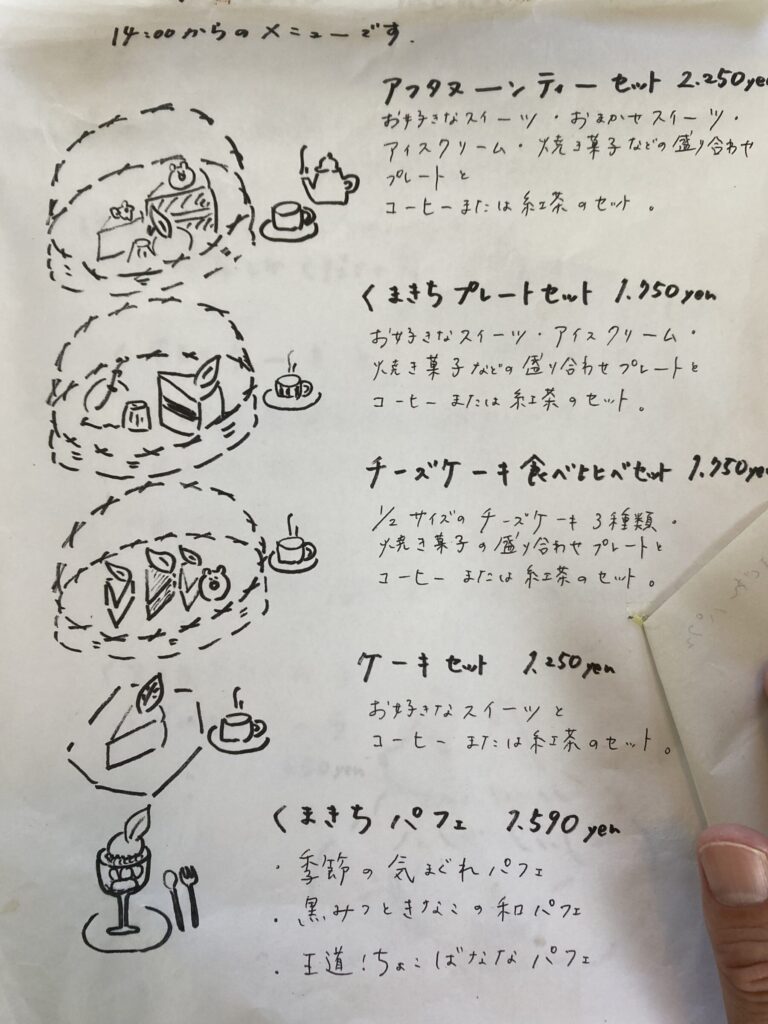 14:00からのメニューです.
アフタヌーンティーセット 2.250yen
お好きなスイーツ・おまかせスイーツ・
アイスクリーム・焼き菓子などの盛り合わせ
プレートと
コーヒーまたは紅茶のセット。
くまきちプレートセット 1.750yen
お好きなスイーツ・アイスクリーム・
焼き菓子などの盛り合わせプレートと
コーヒーまたは紅茶のセット。
チーズケーキ食べ比べセット 1.750yen
1/2サイズのチーズケーキ3種類・
焼き菓子の盛り合わせプレートと
コーヒーまたは紅茶のセット。
ケーキセット 1.250yen
お好きなスイーツと
コーヒーまたは紅茶のセット。
くまきちパフェ 1.590yen
・季節の気まぐれパフェ
・黒みつときなこの和パフェ
・王道!ちょこばななパフェ